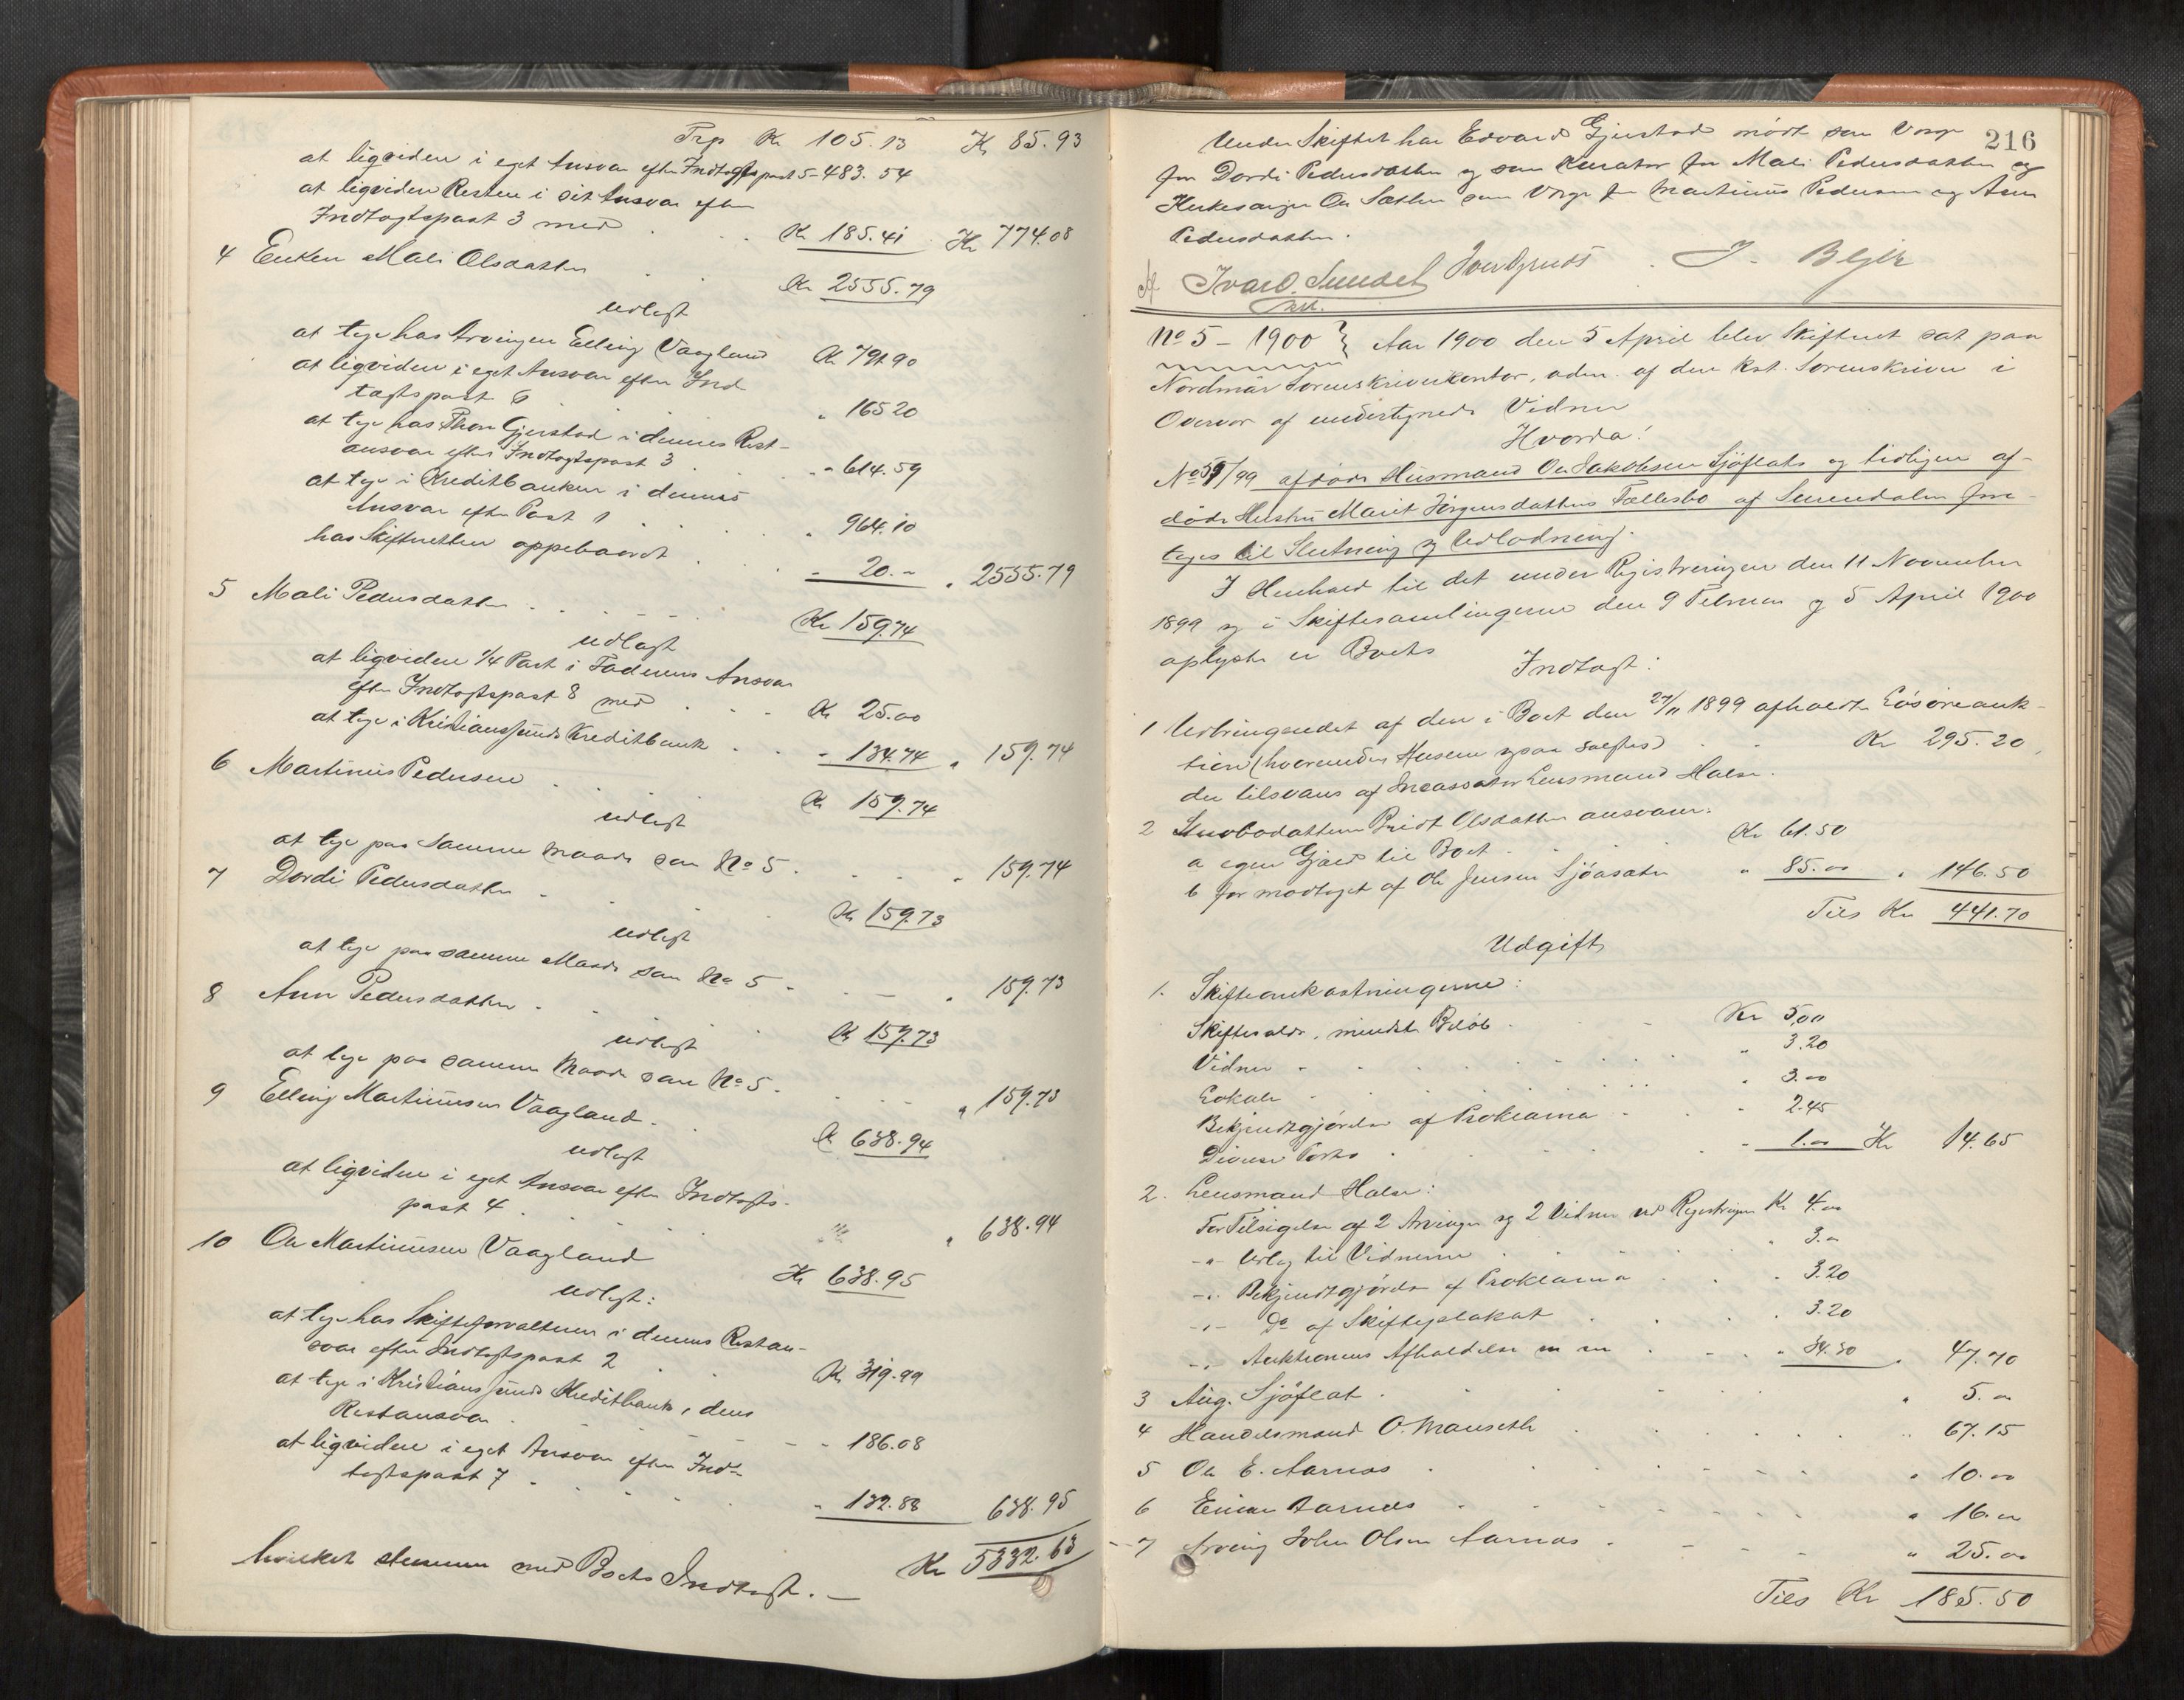 Trp Kr 105.13 Kr 85.93
at ligvidere i eget Ansvar efter Indtægtspost 5 - 483.54
at ligvidere Resten i sit Ansvar efter
Indtægtspost 3 med . . . Kr 185.41 Kr 774.08
4 Enken Mali Olsdatter . . Kr 2555.79
udlagt
at tage hos Arvingen Elling Vaagland Kr 791.90
at ligvidere i eget Ansvar efter Ind
tægtspost 6 . „ 165 20
at tage hos Thore Gjerstad i dennes Rest-
ansvar efter Indtægtspost 3 . . „ 614.59
at tage i Kreditbanken i dennes
Ansvar efter Post 1 . . . „ 964.10
hos Skifteretten oppebaaret . . . „ 20.- „ 2555.79
5 Mali Pedersdatter . . . . . Kr 159.74
udlagt
at ligvidere 1/4 Part i Faderens Ansvar
efter Indtægtspost 8 med . . . Kr 25.00
at tage i Kristianssunds Kreditbank . . - 134.74 „ 159.74
6 Martinus Pedersen . . Kr 159.74
udlagt
at tage paa samme Maade som No 5 . . . . „ 159.74
7 Dordi Pedersdatter . . Kr 159.73
udlagt
at tage paa samme Maade som No 5 . . . „ 159.73
8 Ann Pedersdatter . . . Kr 159.73
udlagt
at tage paa samme Maade som No 5 . . . . „ 159.73
9 Elling Martinussen Vaagland . . Kr 638.94
udlagt
at ligvidere i eget Ansvar efter Indtægts-
post 4 . . . „ 638.94
10 Ole Martinussen Vaagland Kr 638.95
udlagt:
at tage hos Skifteforvalteren i dennes Restan-
svar efter Indtægtspost 2 . Kr 319.99
at tage i Kristianssunds Kreditbank i dens
Restansvar . . . . „ 186.08
at ligvidere i eget Ansvar efter Ind-
tægtspost 7 . . . . „ 132.88 638.95
hvilket stemmer med Boets Indtægt. — Kr 5332.63
216
Under Skiftet har Edvard Gjerstad mødt som Verge
for Dordi Pedersdatter og som Kurator for Mali Pedersdatter og
Kirkesanger Ole Sæther som Verge for Martinus Pedersen og Ann
Pedersdatter.
Ivar O. Sundet J. Bejer
No 5 - 1900 } Aar 1900 den 5 April blev Skifteret sat paa
Nordmør Sorenskriverkontor, adm. af den kst. Sorenskriver i
Overvær af undertegnede Vidner
Hvorda!
No 59/99 afdøde Husmand Ole Jakobsen Sjøflats og tidligere af-
døde Hustru Marit Jörgensdatters Fællesbo af Surendalen fore-
toges til Slutning og Udlodning.
I Henhold til det under Registreringen den 11 November
1899 og i Skiftesamlingerne den 9 Februar og 5 April 1900
oplyste er Boets
Indtægt:
1 Udbringendet af den i Boet den 27/11 1899 afholdte Løsøreauk-
tion (hvorunder Husene ogsaa solgtes) . . Kr 295.20
der tilsvares af Incassator Lensmand Halse.
2 Stuebodatteren Brit Olsdatter ansvarer:
a egen Gjæld til Boet . . . Kr 61.50
b for modtaget af Ole Jensen Sjöasæter „ 85.00 „ 146.50
Tils Kr 441.70
Udgift
1. Skifteomkostningerne:
Skiftesalær, mindste Beløb . . - Kr 5,00
Vidner . . . . . „ 3.20
Lokale . . . . „ 3.00
Bekjendtgjørelse af Proklama . . „ 2.45
Diverse Porto . . „ 1.00 Kr 14.65
2. Lensmand Halse:
For Tilsigelse af 2 Arvinger og 2 Vidner ved Registreringen Kr 4.00
-„- Udlæg til Vidnerne . . . „ 3.00
-„- Bekjendtgjørelse af Proklama . . „ 3.20
-„- Do af Skifteplakat . . . „ 3.20
-„- Auktionens Afholdelse m m . . „ 34.30 „ 47.70
3 Aug. Sjöflat . . . . „ 5.00
4 Handelsmand O. Mauseth . . . . „ 67.15
5 Ole E. Aarnæs . . . . „ 10.00
6 Einar Aarnæs . . . . „ 16.00
7 Arving John Olsen Aarnæs . . . „ 25.00
Tils Kr 185.50